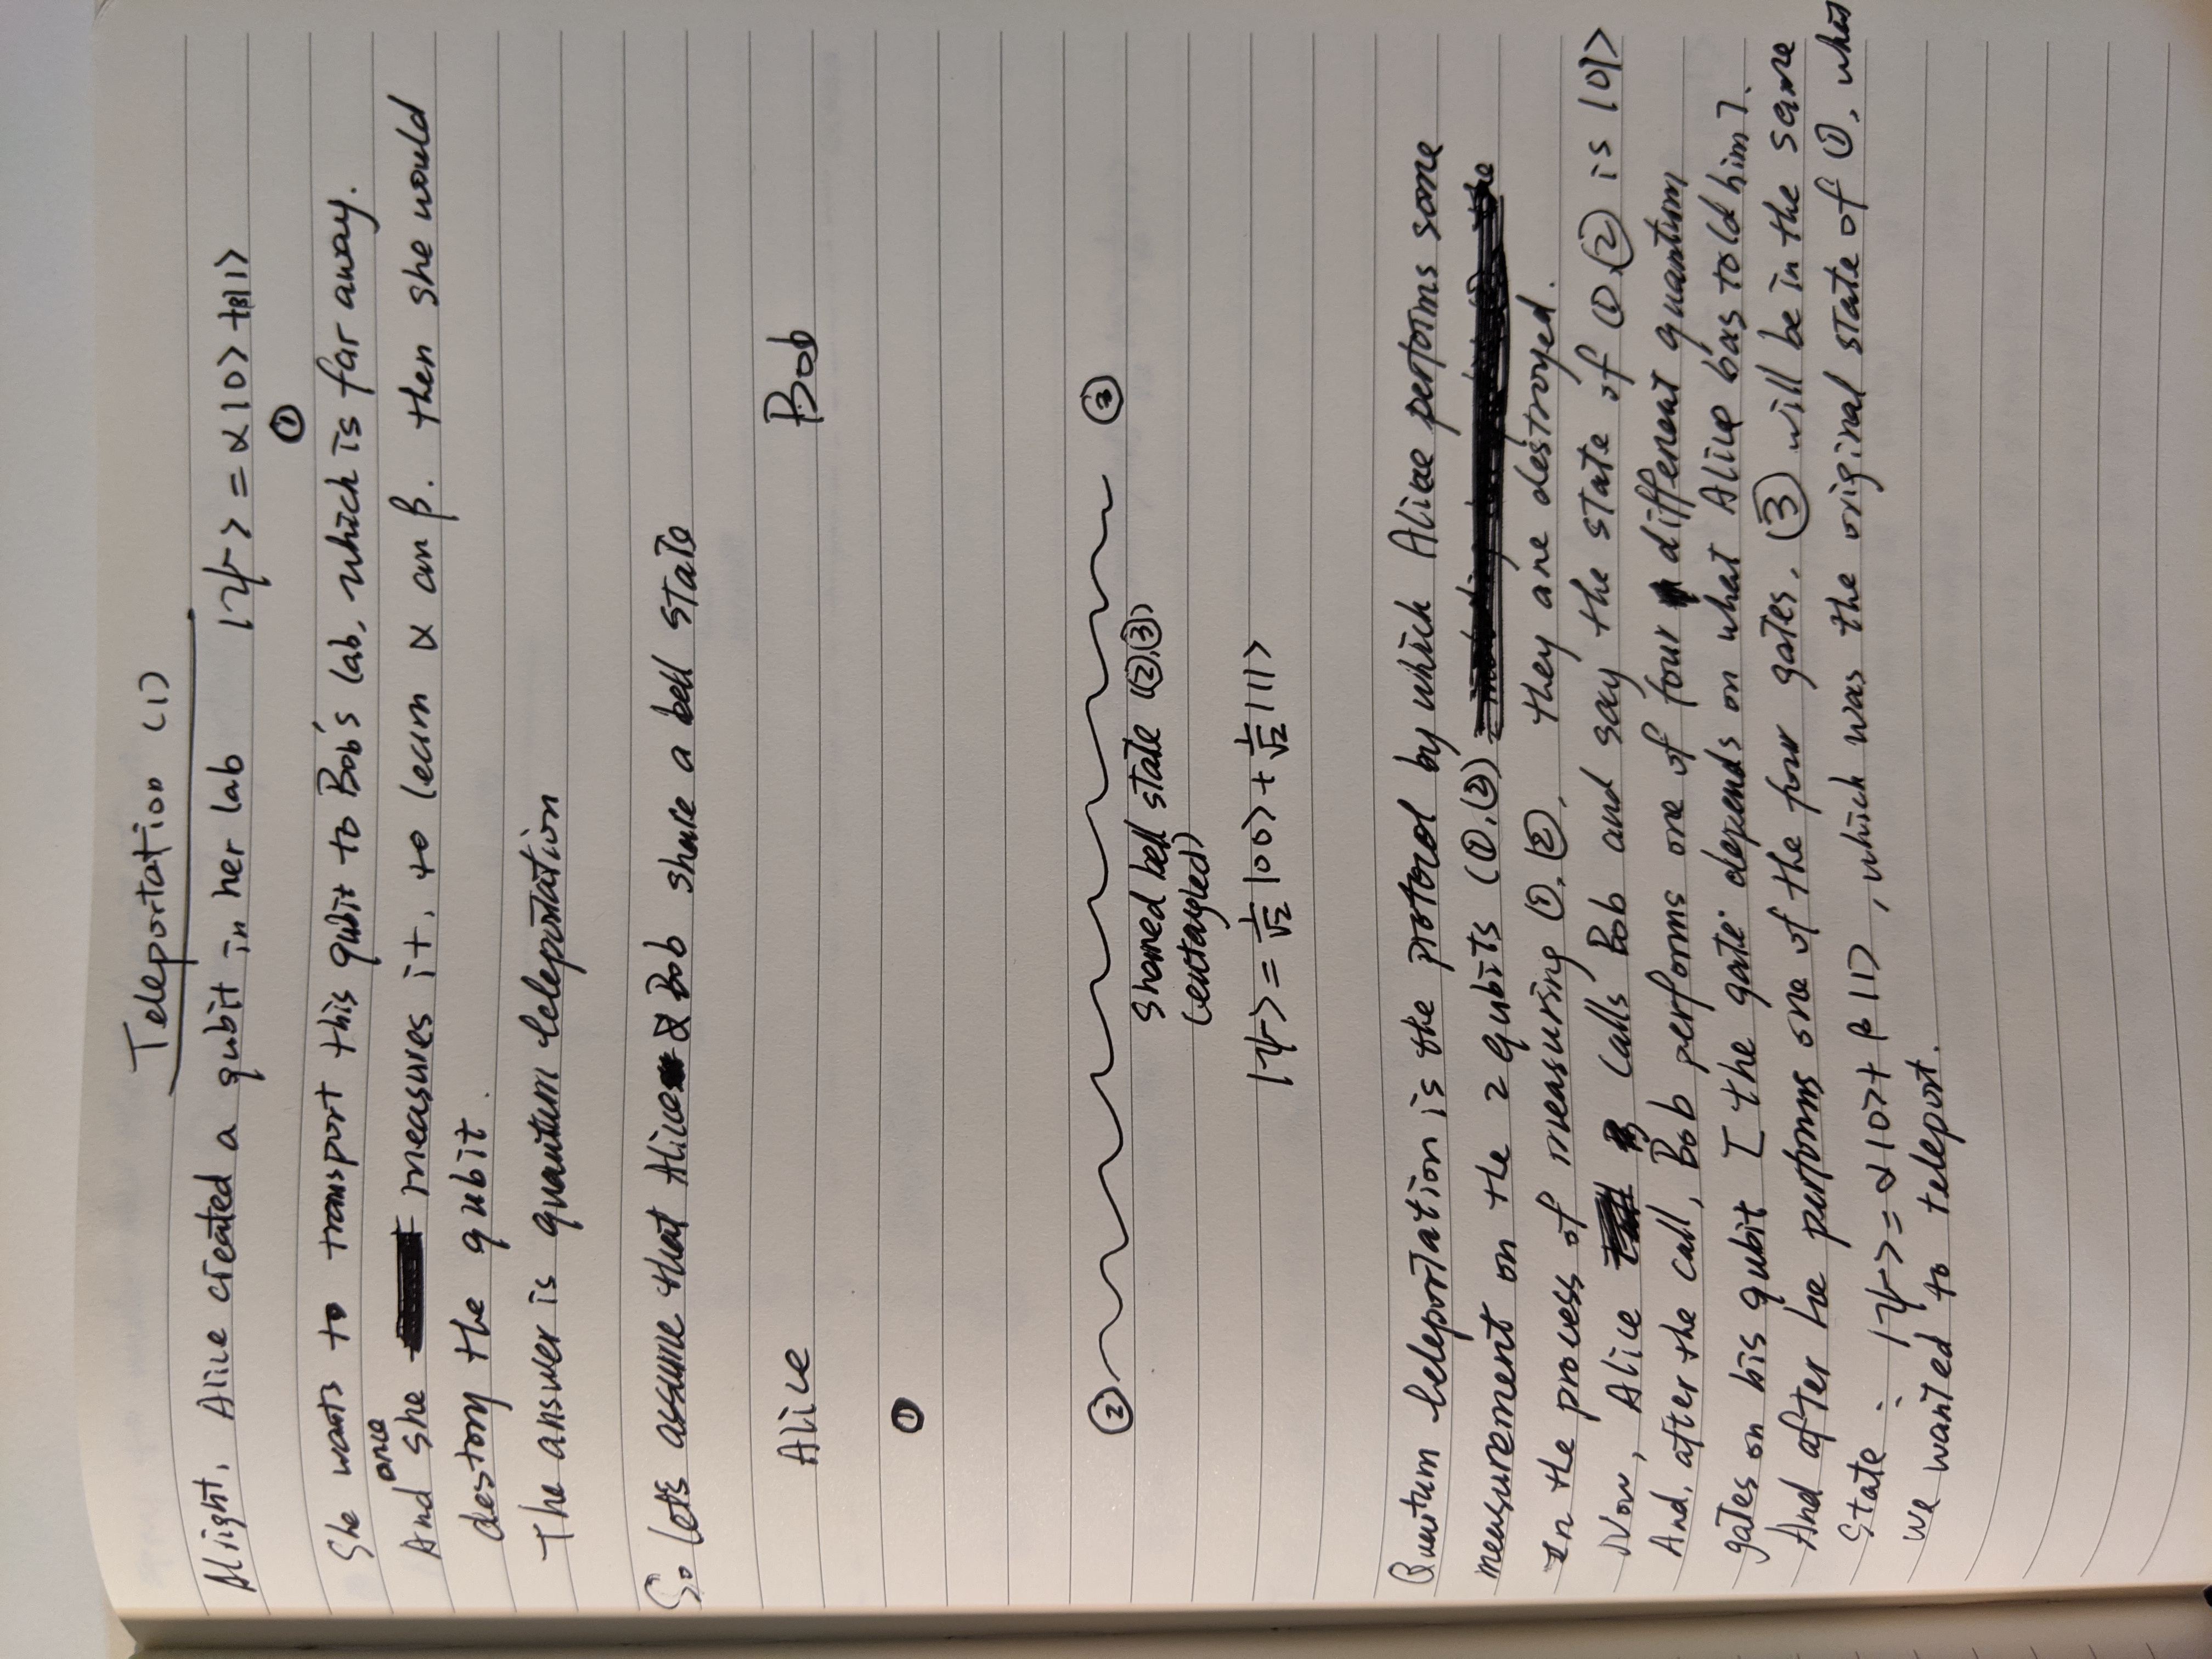 Teleportation (1)
Alright, Alice created a qubit in her lab |ψ> = α|0> + β|1>
①
She wants to transport this qubit to Bob's lab, which is far away.
once
And she measures it, to learn α an β. then she would
destory the qubit.
The answer is quantum teleportation
So let's assume that Alice & Bob share a bell state
Alice Bob
①
② ③
Shared bell state (②,③)
(entagled)
|ψ> = 1/√2 |00> + 1/√2 |11>
Quantum teleportation is the protocol by which Alice performs some
measurement on the 2 qubits (①,②)
In the process of measuring ①,②, they are destroyed.
Now, Alice calls Bob and say the state of ①,② is |01>
And, after the call, Bob performs one of four different quantum
gates on his qubit [the gate depends on what Alice has told him].
And after he performs one of the four gates, ③ will be in the same
State : |ψ> = α|0> + β|1>, which was the original state of ①, what
we wanted to teleport.